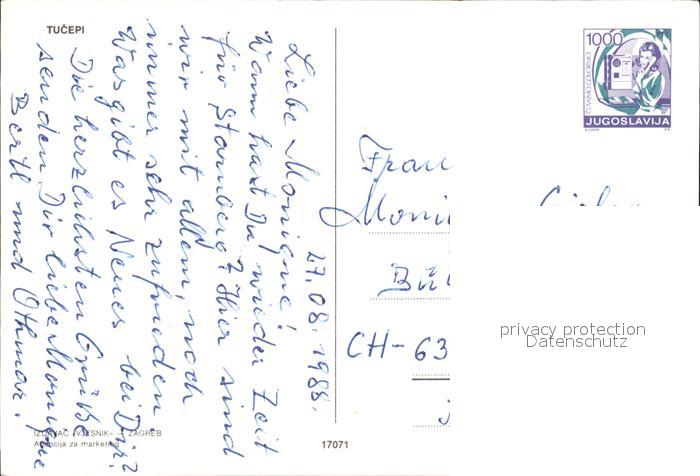 TUČEPI
27.08.1988.
Liebe Monique!
Wann hast Du wieder Zeit
für Starnberg? Hier sind
wir mit allem, noch
immer sehr zufrieden.
Was gibt es Neues bei Dir?
Die herzlichsten Grüße
senden Dir liebe Monique
Bertl und Othmar.
1000
JUGOSLAVIJA
Frau
Moni
Bü
CH-63
privacy protection
Datenschutz
IZDAVAČ »VJESNIK« — ZAGREB
Agencija za marketing
17071